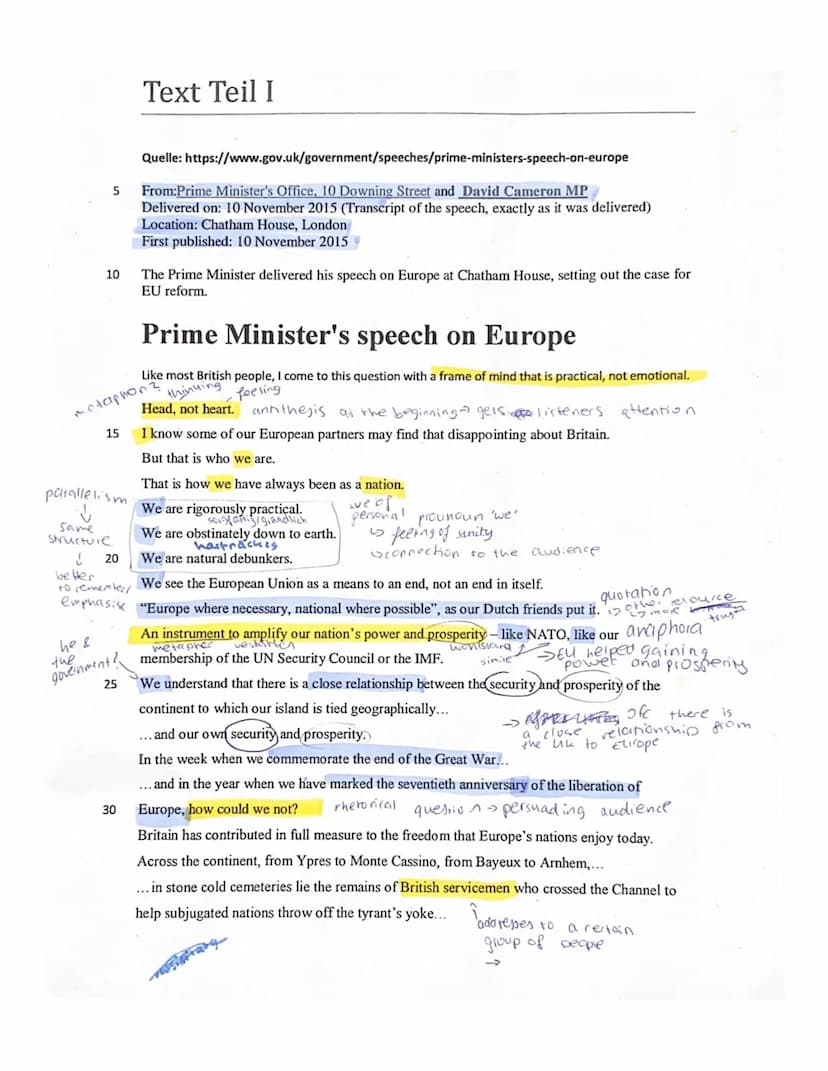 Text Teil I
Quelle: https://www.gov.uk/government/speeches/prime-ministers-speech-on-europe
5 From:Prime Minister's Office, 10 Downing Street and David Cameron MP
Delivered on: 10 November 2015 (Transcript of the speech, exactly as it was delivered)
Location: Chatham House, London
First published: 10 November 2015
10 The Prime Minister delivered his speech on Europe at Chatham House, setting out the case for
EU reform.
Prime Minister's speech on Europe
Like most British people, I come to this question with a frame of mind that is practical, not emotional.
metaphor? thinking feeling
Head, not heart. annthejis at the beginning → gets listeners attention
15 I know some of our European partners may find that disappointing about Britain.
But that is who we are.
That is how we have always been as a nation.
parallelism
↓
same
structure
↓
better
to remember/
emphasis
We are rigorously practical.
We are obstinately down to earth.
20 We are natural debunkers.
we of
personal pronoun 'we'
↳ feeling of unity
↳ connection to the audience
We see the European Union as a means to an end, not an end in itself.
quotation
“Europe where necessary, national where possible”, as our Dutch friends put it.
↳ other resource
↳ more trust
An instrument to amplify our nation's power and prosperity – like NATO, like our anaphora
metapher verstärken wohlstand simile
→ EU helped gaining
power and prosperity
he &
the
government?
membership of the UN Security Council or the IMF.
25 We understand that there is a close relationship between the security and prosperity of the
continent to which our island is tied geographically…
→ Ofc there is
a close relationship from
the UK to Europe
…and our own security and prosperity.
In the week when we commemorate the end of the Great War…
…and in the year when we have marked the seventieth anniversary of the liberation of
30 Europe, how could we not? rhetorical question → persuading audience
Britain has contributed in full measure to the freedom that Europe's nations enjoy today.
Across the continent, from Ypres to Monte Cassino, from Bayeux to Arnhem,…
…in stone cold cemeteries lie the remains of British servicemen who crossed the Channel to
help subjugated nations throw off the tyrant's yoke…
addresses to a certain
group of people
→